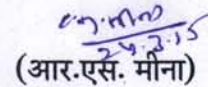 24.3.15
(आर.एस. मीना)